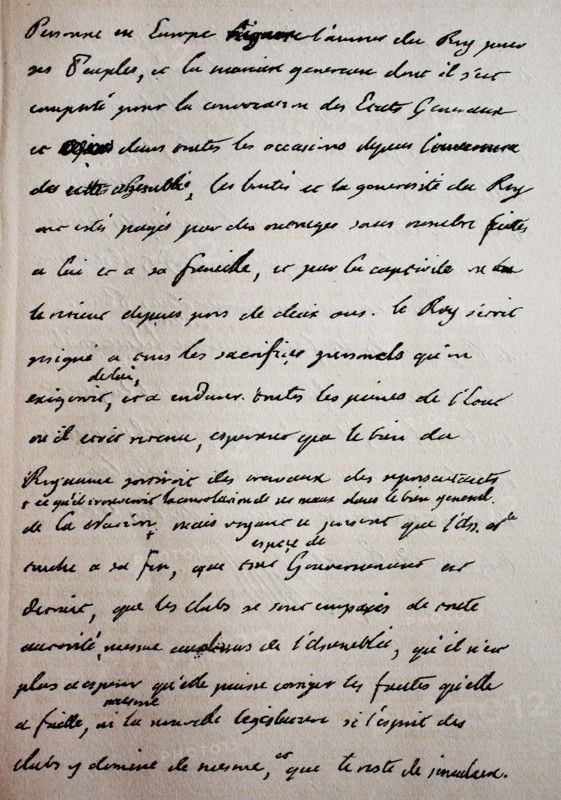 Personne en Europe ignore l'amour du Roy pour
ses Peuples, et la maniere genereuse dont il s'est
comporté pour la convocation des Etats Generaux
et dans toutes les occasions depuis l'ouverture
de cette assemblée, les bontés et la generosité du Roy
ont estés payés par des outrages sans nombre faites
a lui et a sa famille, et par la captivité ou on
le retient depuis prs de deux ans. le Roy s'étoit
resigné a tous les sacrifices personels qu'on
de lui,
exigeroit, et a endurer toutes les peines de l'état
ou il etoit retenu, esperant que le bien du
Royaume sortiroit des travaux des representants
+ et qu'il trouveroit la consolation de ses maux dans le bien general.
de la nation + mais voyant a present que l'Ass. nle
espece de
touche a sa fin, que tout Gouvernement est
detruit, que les clubs se sont emparés de toute
autorité, mesme au dessus de l'Assemblée, qu'il n'est
plus a esperer qu'elle puisse corriger les fautes qu'elle
mesme
a faitte, ni la nouvelle legislature si l'esprit des
clubs y domine de mesme, et que le reste de